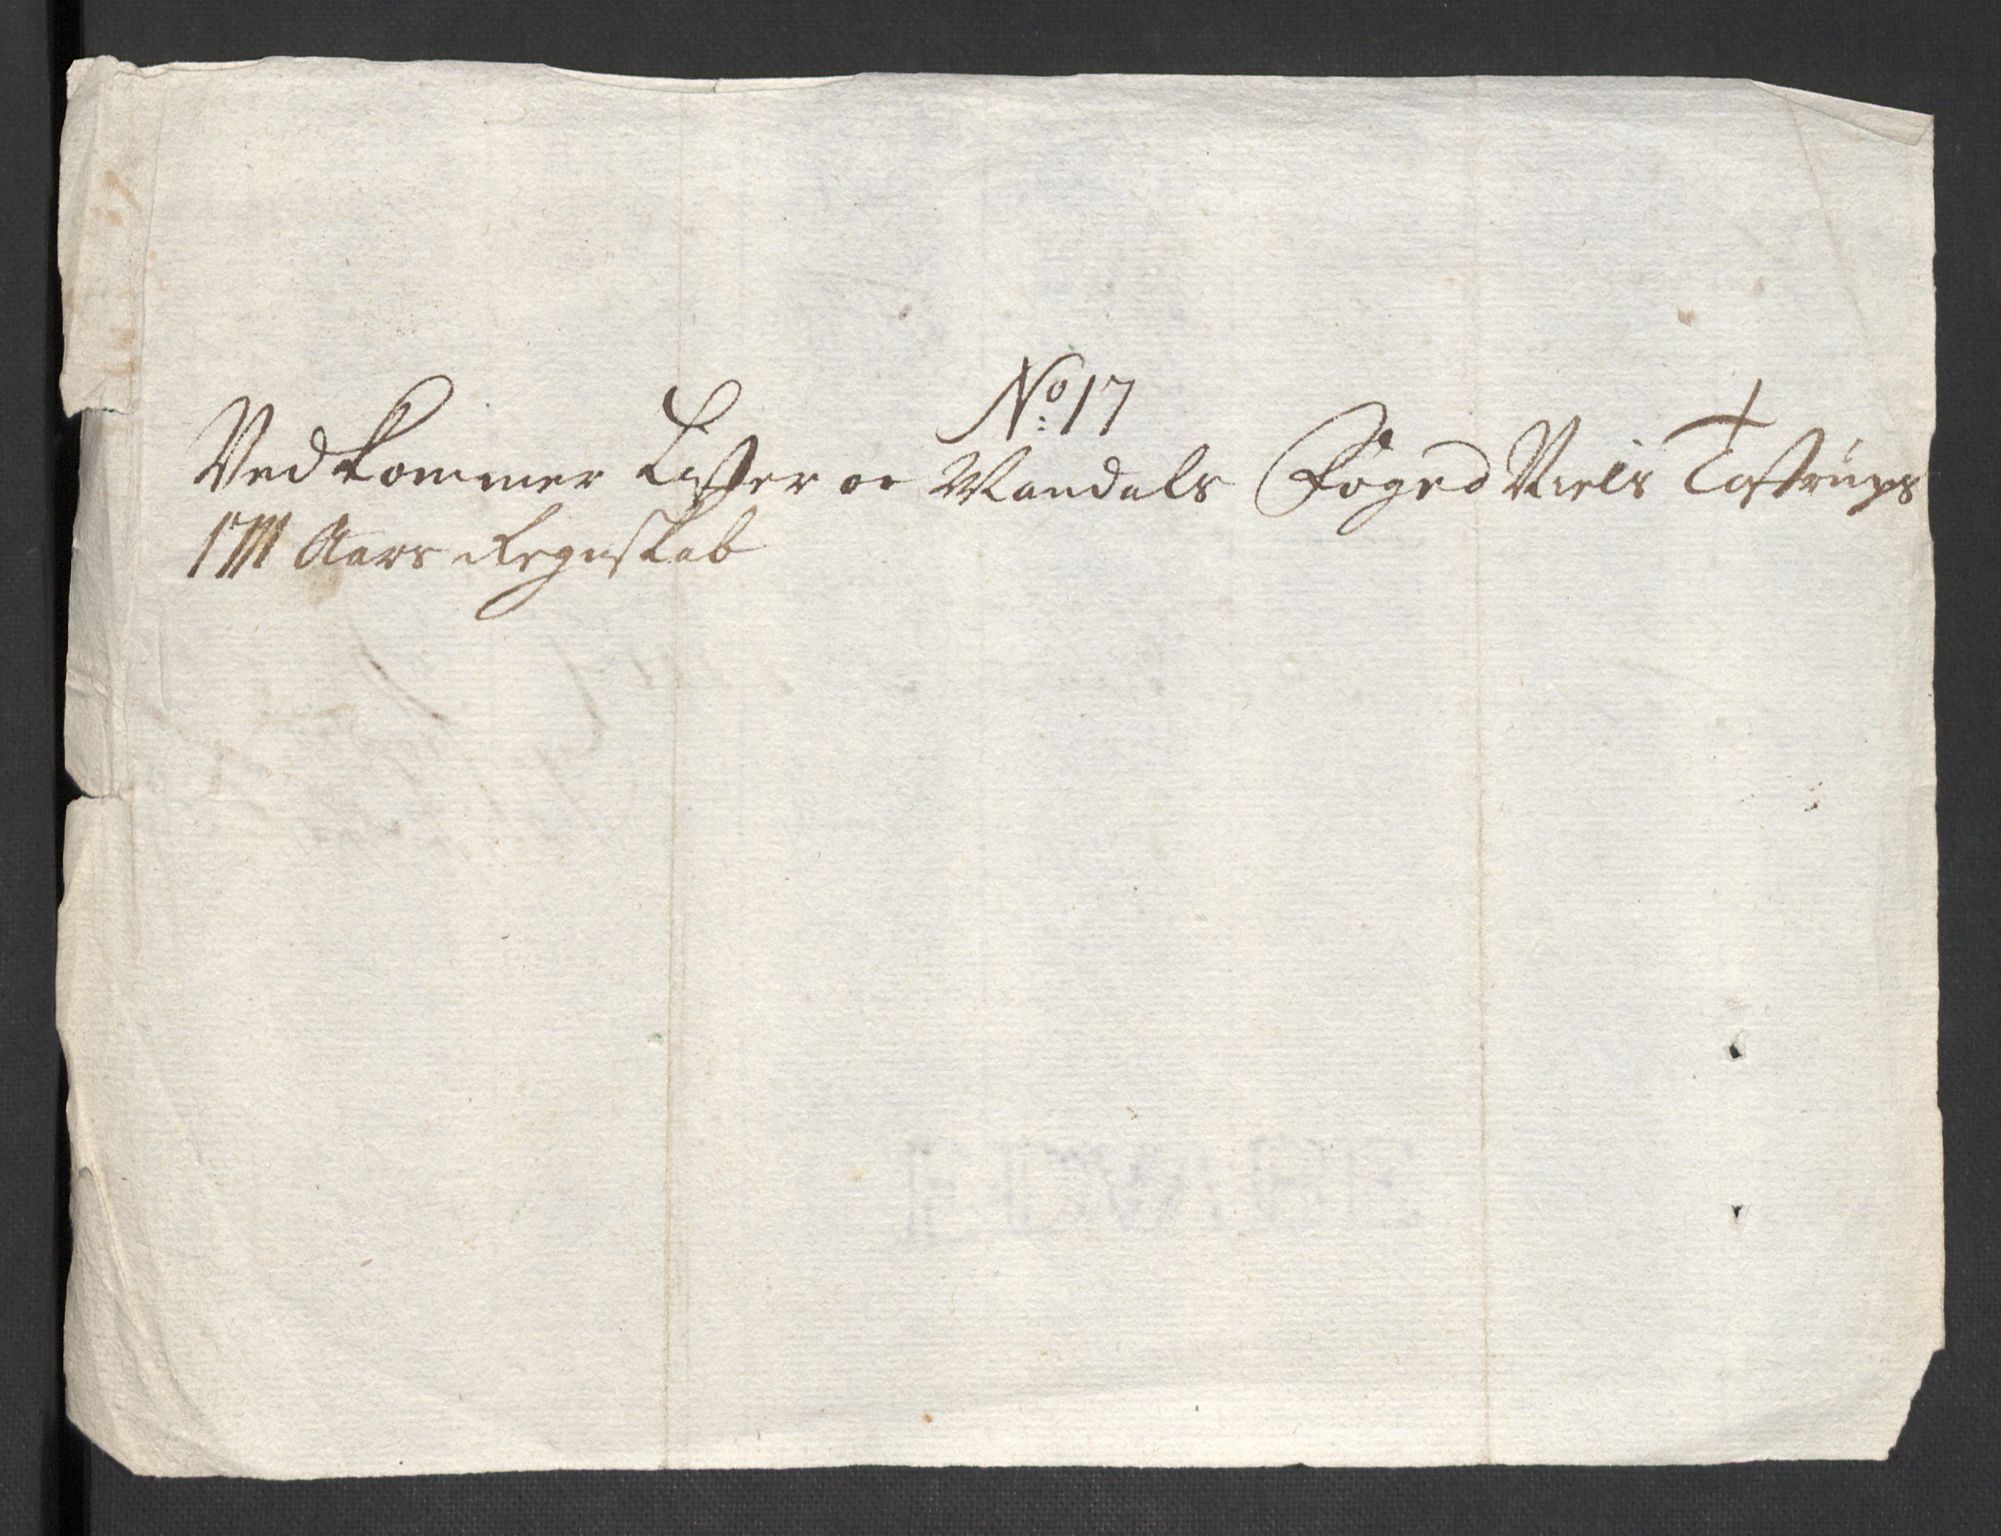 No: 17
Vedkommer Lister oc Mandals Foged Niels Tostrups
1711 Aars Regnskab